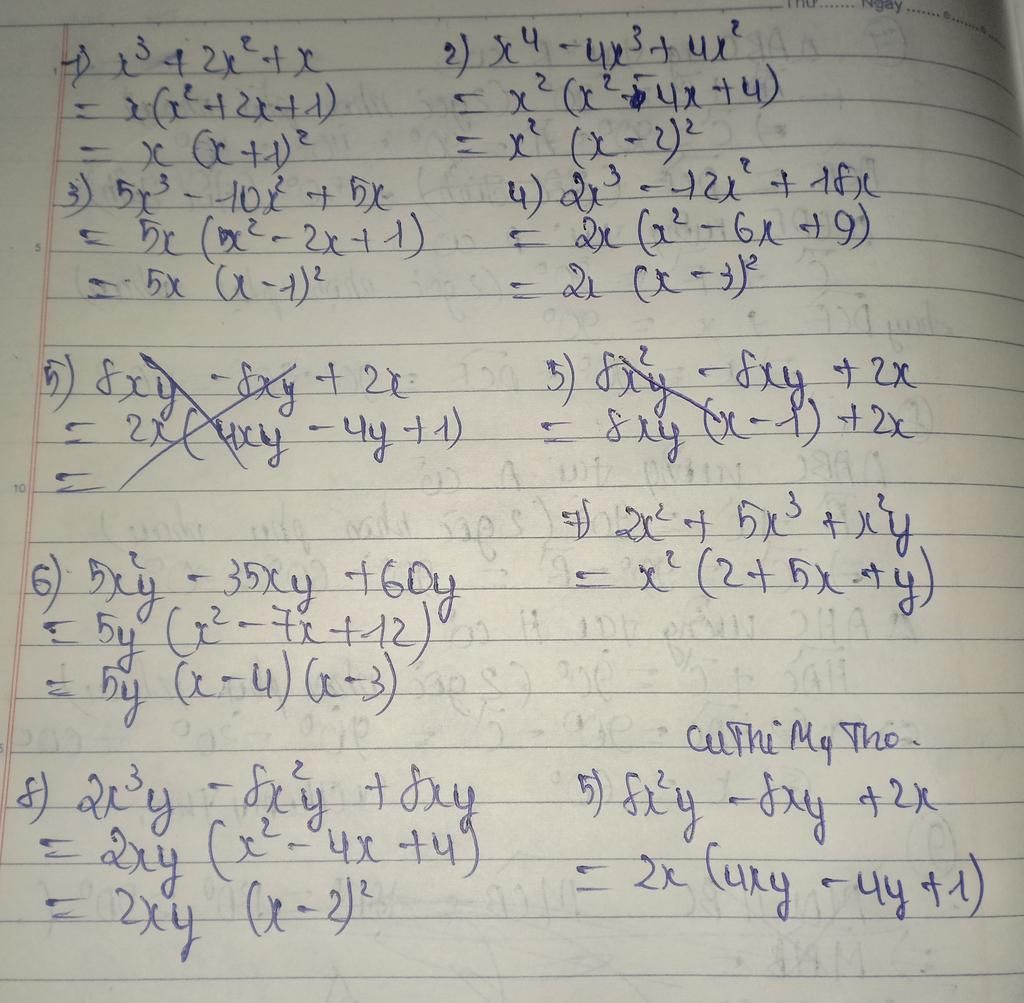 Thứ ...... Ngày ......
1) x³ + 2x² + x
= x(x² + 2x + 1)
= x (x + 1)²
2) x⁴ - 4x³ + 4x²
= x² (x² - 4x + 4)
= x² (x - 2)²
3) 5x³ - 10x² + 5x
= 5x (x² - 2x + 1)
= 5x (x - 1)²
4) 2x³ - 12x² + 18x
= 2x (x² - 6x + 9)
= 2x (x - 3)²
5) 8xy - 8xy + 2x
= 2x (4xy - 4y + 1)
=
5) 8x²y - 8xy + 2x
= 8xy (x - 1) + 2x
6) 5x²y - 35xy + 60y
= 5y (x² - 7x + 12)
= 5y (x - 4) (x - 3)
7) 2x² + 5x³ + x²y
= x² (2 + 5x + y)
CùThị Mỹ Tho.
8) 2x³y - 8x²y + 8xy
= 2xy (x² - 4x + 4)
= 2xy (x - 2)²
5) 8x²y - 8xy + 2x
= 2x (4xy - 4y + 1)